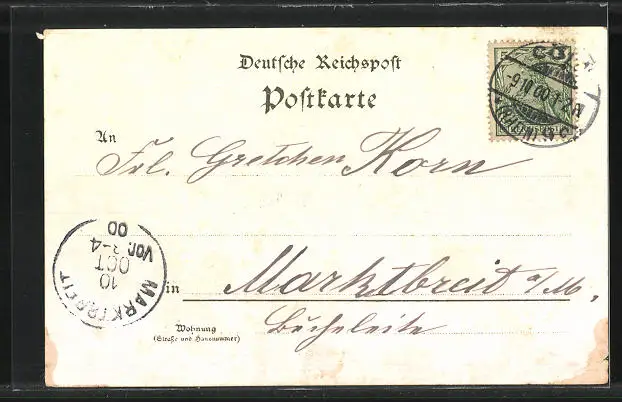 Deutsche Reichspost
Postkarte
An
Frl. Gretchen Korn
in Marktbreit a/M.
Wohnung
(Straße und Hausnummer)
Bucheleite
MARKTBREIT
10
OCT
VOR 3-4
00